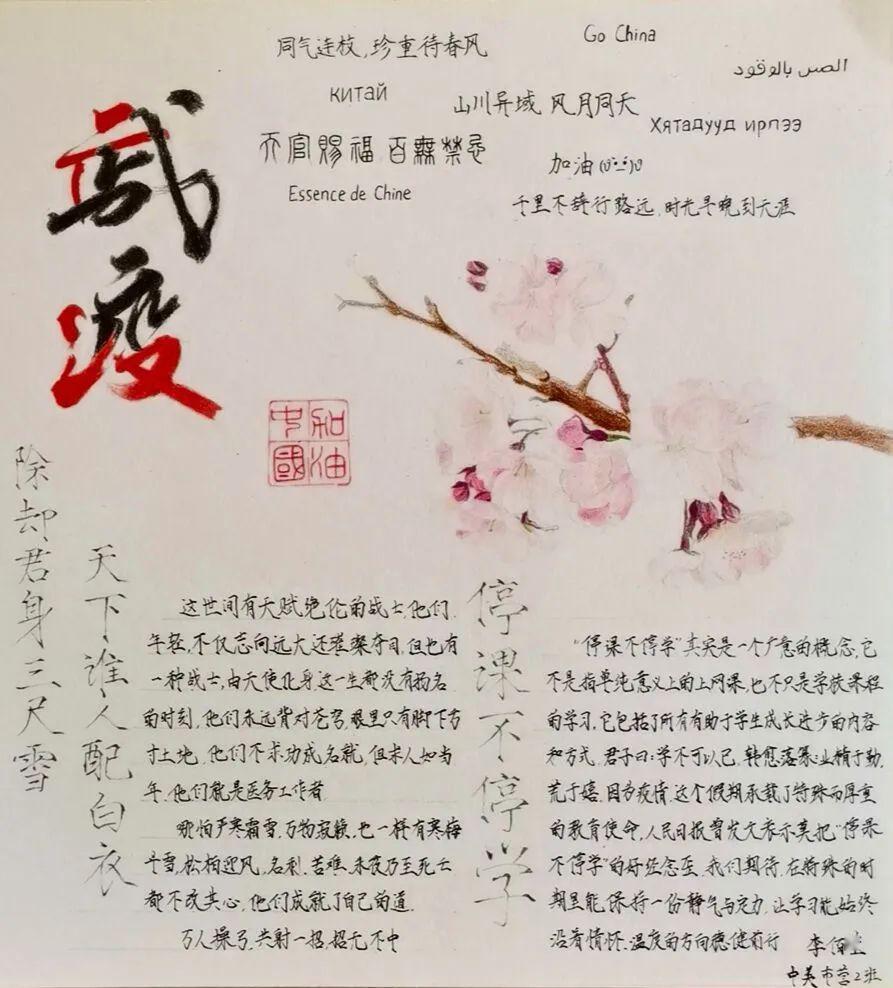 同气连枝,珍重待春风
Go China
الصين بالوقود
китай
山川异域 风月同天
Хятадууд ирпээ
天官賜福 百無禁忌
加油
Essence de Chine
千里不辞行路远,时光早晚到天涯
武
疫
中國
加油
除却君身三尺雪
天下谁人配白衣
这世间有天赋绝伦的战士,他们
年轻,不仅志向远大还璀璨夺目,但也有
一种战士,由天使化身,这一生都没有扬名
的时刻,他们永远背对苍穹,眼里只有脚下方
寸土地,他们不求功成名就,但求人如当
年,他们就是医务工作者.
哪怕严寒霜雪,万物寂籁,也一样有寒梅
斗雪,松柏迎风,名利、苦难、未夜乃至死亡
都不改其心,他们成就了自己的道.
万人操弓,共射一招,招无不中
停课不停学
"停课不停学"其实是一个广意的概念,它
不是指单纯意义上的上网课,也不只是学校课程
的学习,它包括了所有有助于学生成长进步的内容
和方式,君子曰:学不可以已,业精于勤,
荒于嬉.因为疫情,这个假期承载了特殊而厚重
的教育使命,人民日报曾发文表示莫把"停课
不停学"的好经念歪,我们期待,在特殊的时
期里能保持一份静气与定力,让学习能始终
沿着情怀、温度的方向稳健前行
李佰
中美市营2班